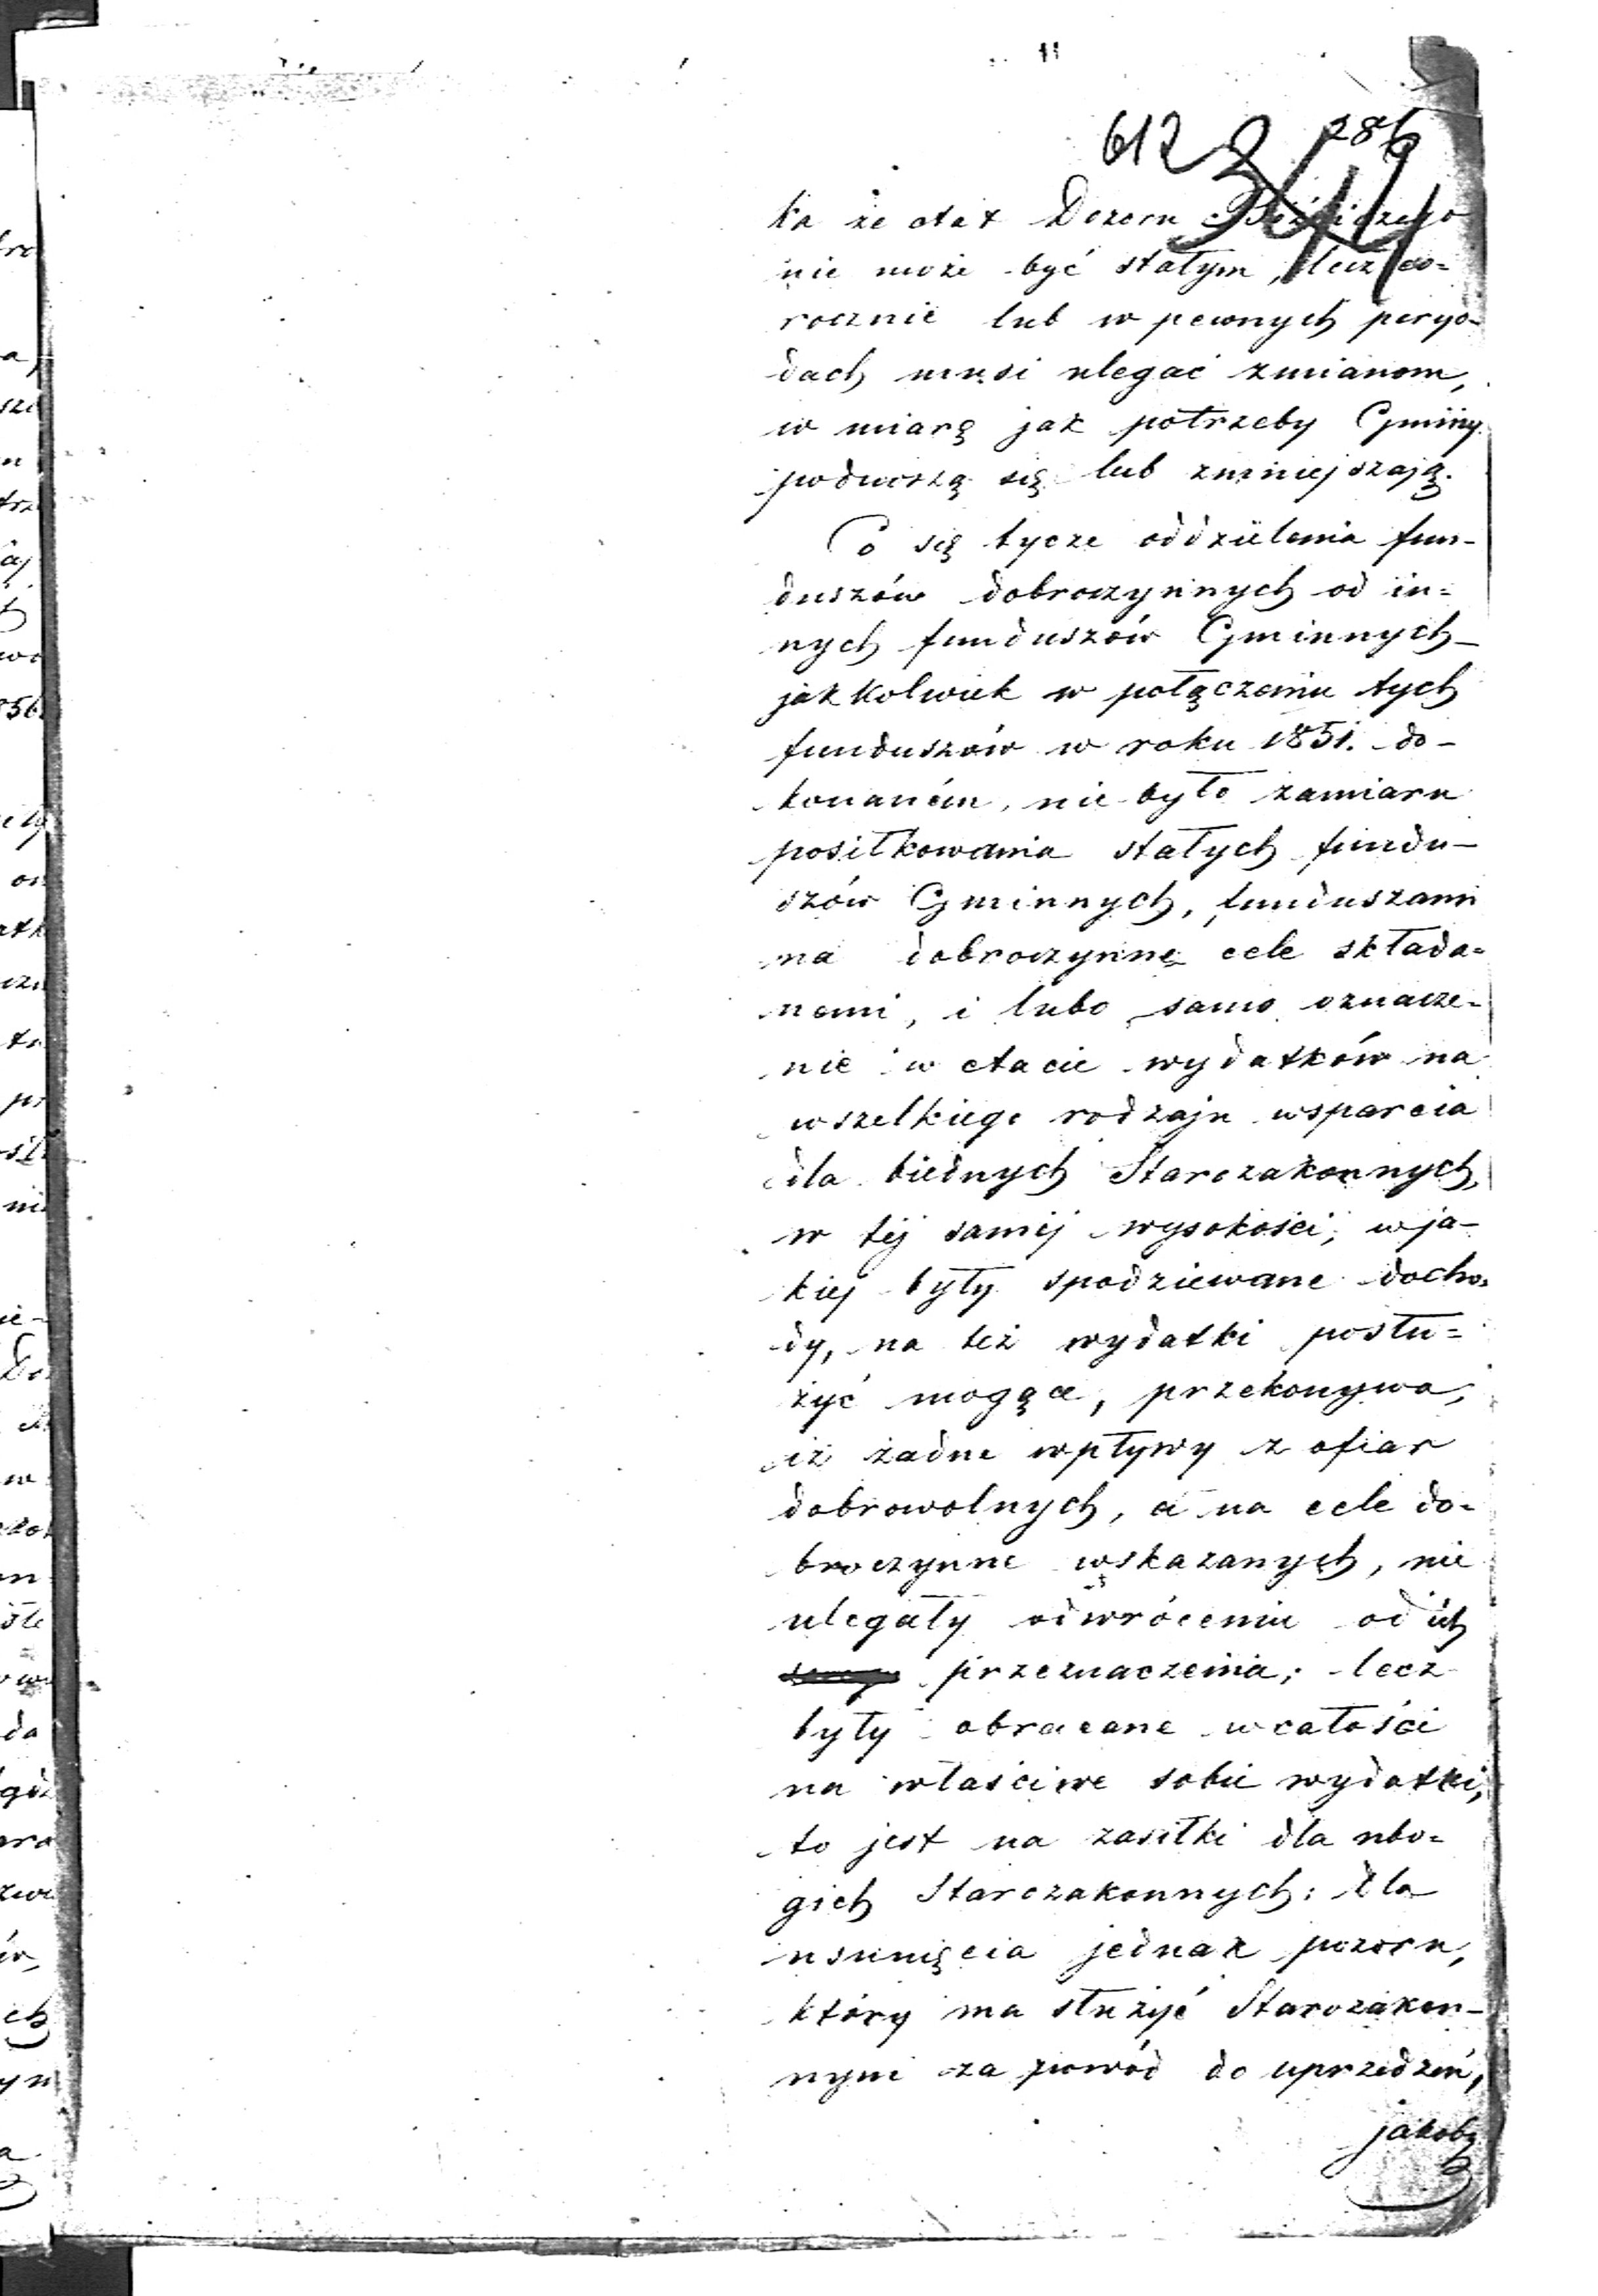 612 286
ka że etat Dozoru Bóżniczego
nie może być stałym, lecz co=
rocznie lub w pewnych peryo=
dach musi ulegać zmianom,
w miarę jak potrzeby Gminy
podnoszą się lub zmniejszają.
Co się tycze oddzielenia fun-
duszów dobroczynnych od in=
nych funduszów Gminnych-
jakkolwiek w połączeniu tych
funduszów w roku 1851. do-
konaném, nie było zamiaru
posiłkowania stałych fundu-
szów Gminnych, funduszami
na dobroczynne cele składa=
nemi, i lubo samo oznacze=
nie w etacie wydatków na
wszelkiego rodzaju wsparcia
dla biednych Starozakonnych,
w téj saméj wysokości, w ja-
kiej były spodziewane docho=
dy, na też wydatki posłu=
żyć mogące, przekonywa,
iż żadne wpływy z ofiar
dobrowolnych, a na cele do=
broczynne wskazanych, nie
ulegały odwróceniu od ich
przeznaczenia; lecz
były obracane w całości
na właściwe sobie wydatki,
to jest na zasiłki dla ubo=
gich Starozakonnych: dla
usunięcia jednak pozoru,
który ma służyć Starozakon-
nym za powód do uprzedzeń,
jakoby